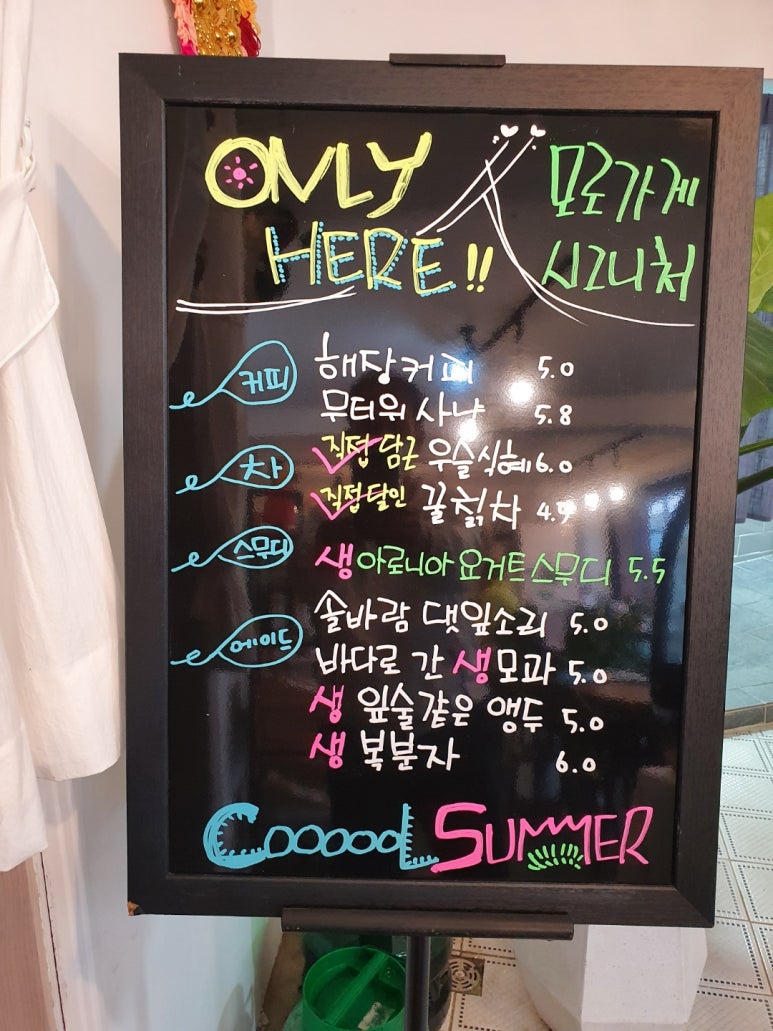 ONLY
HERE!!
모로가게
시그니처
커피
해당커피 5.0
무터위 사냥 5.8
차
직접 담근 우슬식혜 6.0
직접 달인 꿀칡차 4.9
스무디
생 아로니아 요거트 스무디 5.5
에이드
솔바람 댓잎소리 5.0
바다로 간 생모과 5.0
생 잎술같은 앵두 5.0
생 복분자 6.0
CoooooL SUMMER